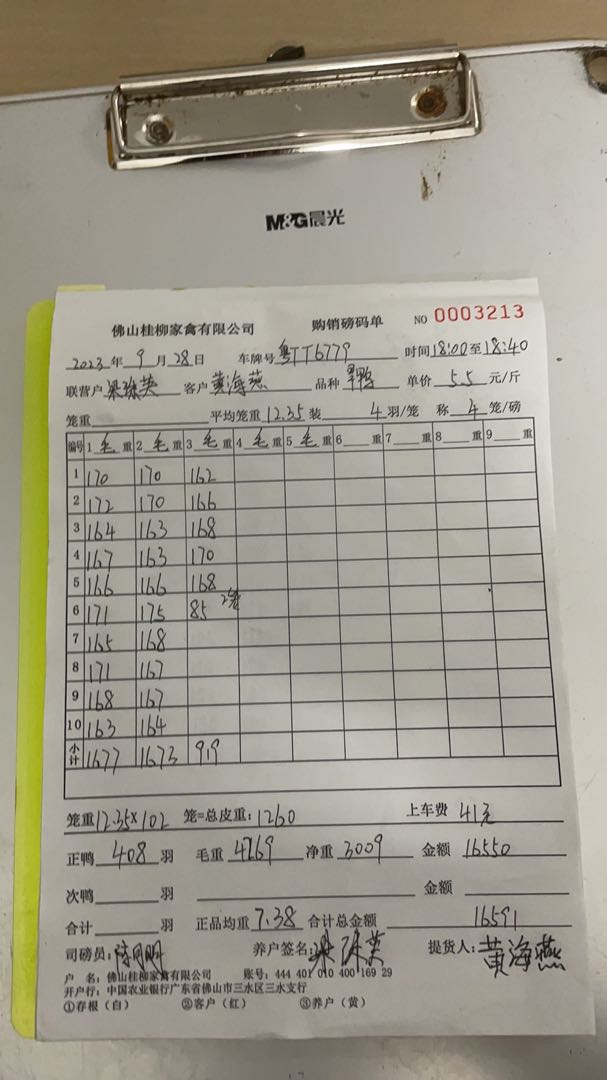 M&G晨光
佛山桂柳家禽有限公司 购销磅码单 NO 0003213
2023年 9月 28日 车牌号 粤TT6779 时间 18:00至18:40
联营户 梁珠英 客户 黄海燕 品种 单价 5.5 元/斤
笼重 平均笼重 12.35 装 4 羽/笼 称 4 笼/磅
编号 1 毛 重 2 毛 重 3 毛 重 4 毛 重 5 毛 重 6 重 7 重 8 重 9 重
1 170 170 162
2 172 170 166
3 164 163 168
4 167 163 170
5 166 166 168
6 171 175 85 2笼
7 165 168
8 171 167
9 168 167
10 163 164
小计 1677 1673 919
笼重 12.35×102 笼=总皮重: 1260 上车费 41元
正鸭 408 羽 毛重 4269 净重 3009 金额 16550
次鸭 羽 金额
合计 羽 正品均重 7.38 合计总金额 16591
司磅员: 养户签名: 梁珠英 提货人: 黄海燕
户 名: 佛山桂柳家禽有限公司 账号: 444 401 010 400 169 29
开户行: 中国农业银行广东省佛山市三水区三水支行
①存根（白） ②客户（红） ③养户（黄）